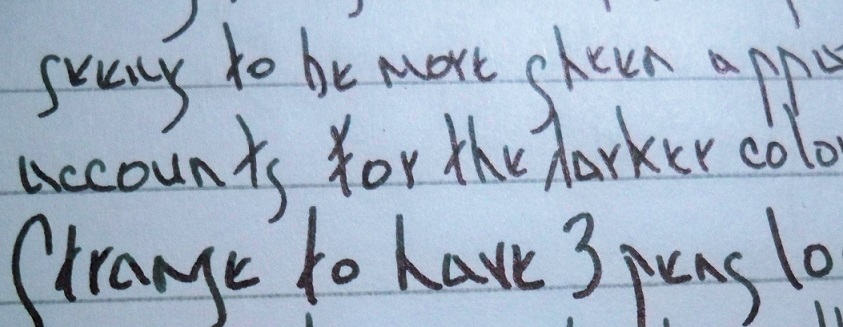 seems to be more sheen app
accounts for the darker colo
Strange to have 3 pens lo